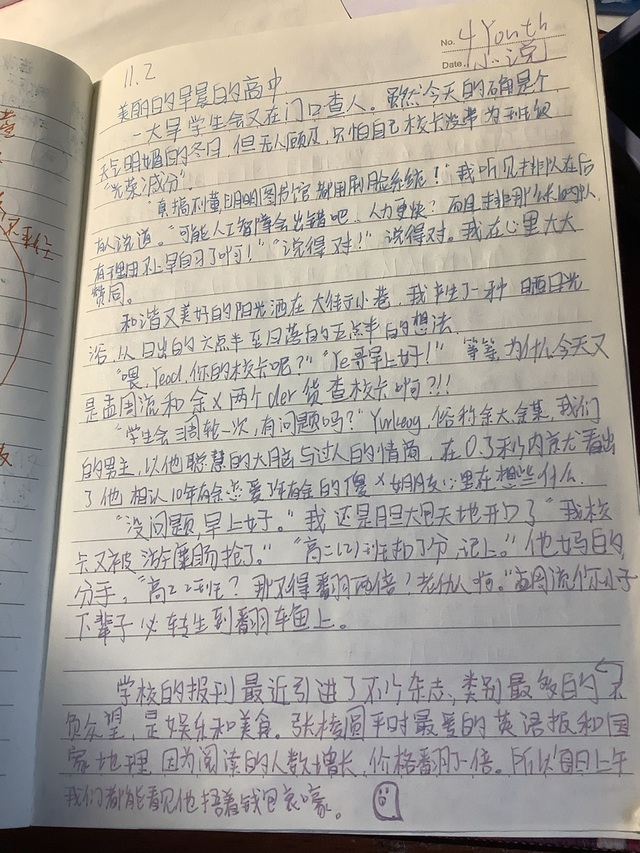 No. 4 Youth
Date. 小说
11.2
美丽的早晨的高中
一大早学生会又在门口查人。虽然今天的确是个
天气明媚的冬日,但无人顾及,只怕自己校卡没带为班级
“光荣减分”。
“真搞不懂,明明图书馆都用刷脸系统!”我听见排队在后
有人说道。“可能人工智障会出错吧,人力更快?而且排那么长的队
有理由不上早自习了啊!”“说得对!”说得对。我在心里大大
赞同。
和谐又美好的阳光洒在大街小巷,我产生了一种晒日光
浴,从日出的六点半至日落的五点半的想法。
“喂,Yeol,你的校卡呢?”“Ye哥早上好!”等等,为什么今天又
是孟周流和余×两个der货查校卡啊?!!
“学生会三周轮一次,有问题吗?”俗称余大余某,我们
的男主,以他聪慧的大脑与过人的情商,在0.3秒内就看出
了他相认10年有余恋爱有余的傻×女朋友心里在想些什么
“没问题,早上好。”我还是胆大包天地开口了“我校
卡又被抢了。”“高二(2)班扣3分,记上。”他妈的,
分手。“高二2班?那不得翻两倍?老仇人啊。”孟周流你小子
下辈子必转生到翻车鱼上。
学校的报刊最近引进了不少杂志,类别最多的不
负众望,是娱乐和美食。张楼圆平时最爱的英语报和国
家地理,因为阅读的人数增长,价格翻了一倍。所以每日上午
我们都能看见他捂着钱包哀嚎。